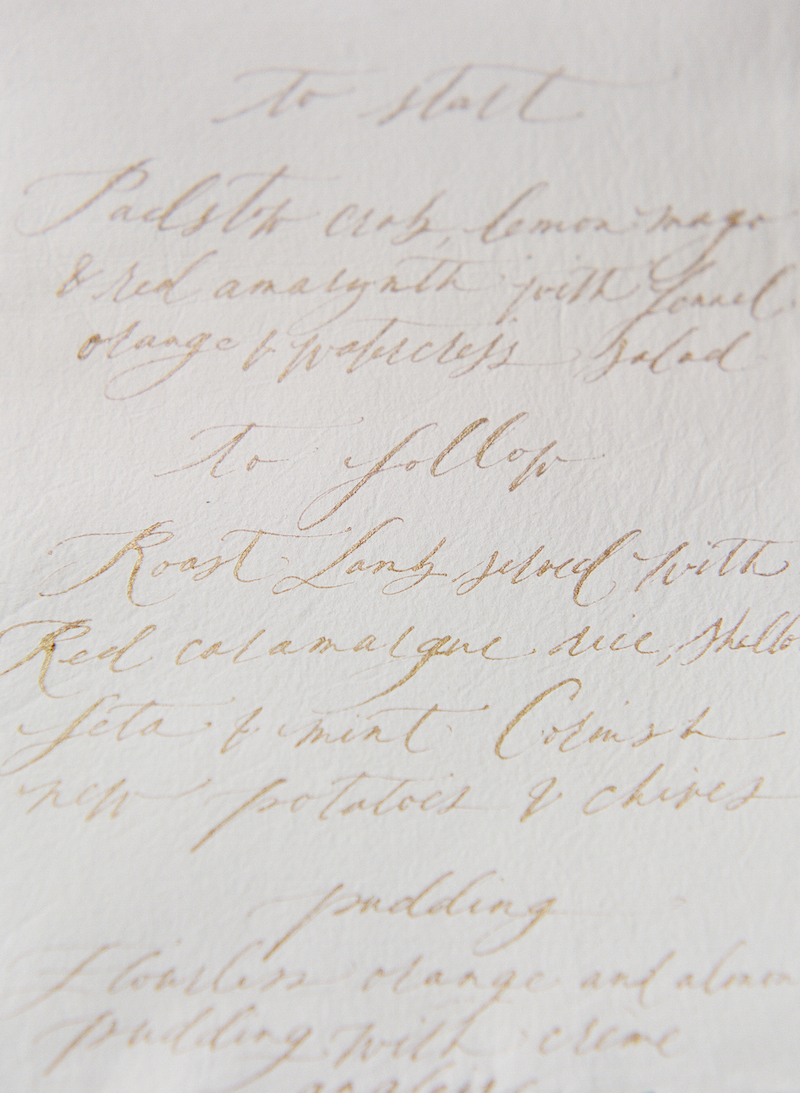 to start
Padstow crab, lemon mayo
& red amarynth with fennel
orange & watercress salad
to follow
Roast Lamb served with
Red caramargue rice, shallo
feta & mint Cornish
new potatoes & chives
pudding
Flourless orange and almon
pudding with creme
anglaise